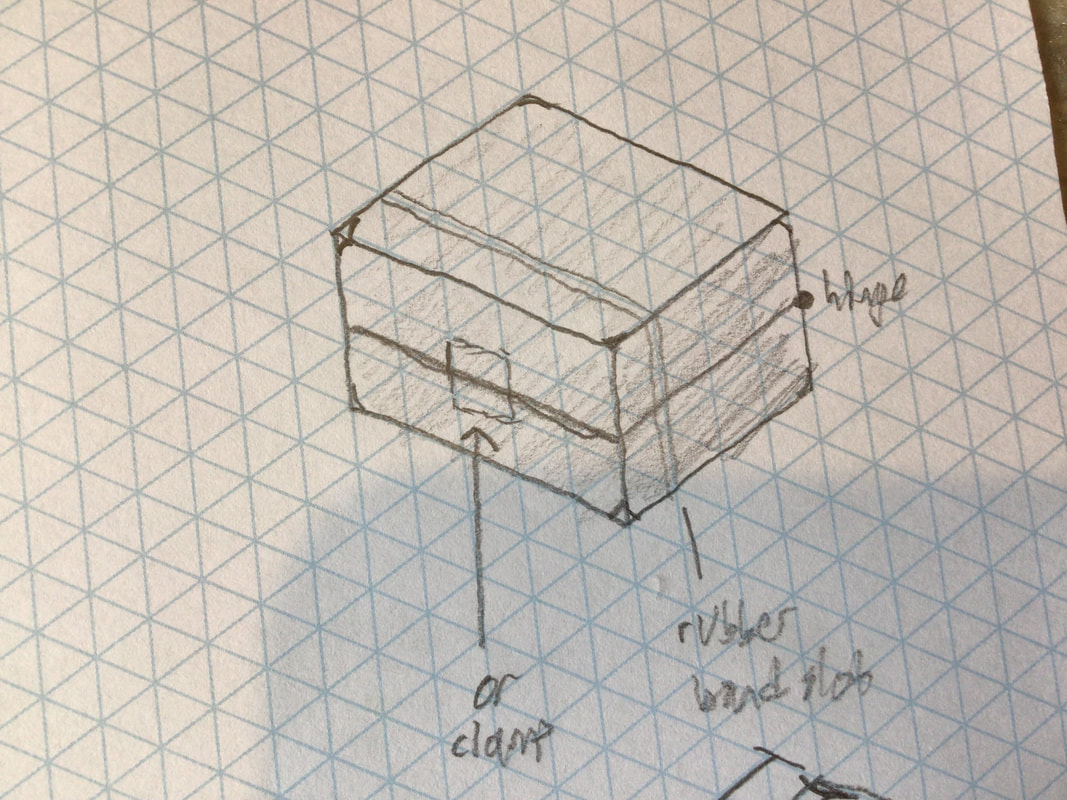 hinge
rubber
band slot
or
clamp